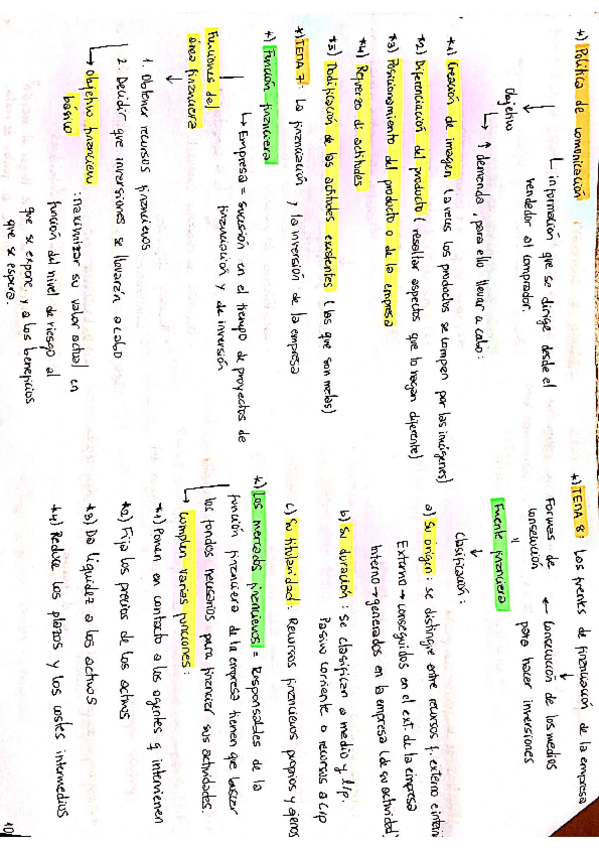 *) Política de comunicación
↳ información que se dirige desde el
vendedor al comprador.
Objetivo
↳ ↑ demanda, para ello llevar a cabo:
*1) Creación de imagen (a veces los productos se compen por las imágenes)
*2) Diferenciación del producto (resaltar aspectos que lo hagan diferente)
*3) Posicionamiento del producto o de la empresa
*4) Refuerzo de actitudes
*5) Modificación de las actitudes existentes (las que son malas)
*) TEMA 7: La financiación y la inversión de la empresa
*) Función financiera
↳ Empresa = sucesión en el tiempo de proyectos de
financiación y de inversión
Funciones del
área financiera
1. Obtener recursos financieros
2. Decidir que inversiones se llevarán a cabo
→ Objetivo financiero
básico : maximizar su valor actual en
función del nivel de riesgo al
que se expone y a los beneficios
que se espera.
*) TEMA 8: Las fuentes de financiación de la empresa
Formas de ← Consecución de los medios
consecución para hacer inversiones
"
Fuente financiera
Clasificación:
a) Su origen: se distingue entre recursos f. externo e intern
Externo → conseguidos en el ext. de la empresa
Interno → generados en la empresa (de su actividad)
b) Su duración: se clasifican a medio y l/p.
Pasivo corriente o recursos a c/p
c) Su titularidad: Recursos financieros propios y ajenos
*) Los mercados financieros = Responsables de la
función financiera de la empresa tienen que buscar
los fondos necesarios para financiar sus actividades.
↳ Cumplen varias funciones:
*1) Ponen en contacto a los agentes q intervienen
*2) Fija los precios de los activos
*3) Da liquidez a los activos
*4) Reduce los plazos y los costes intermedios
10